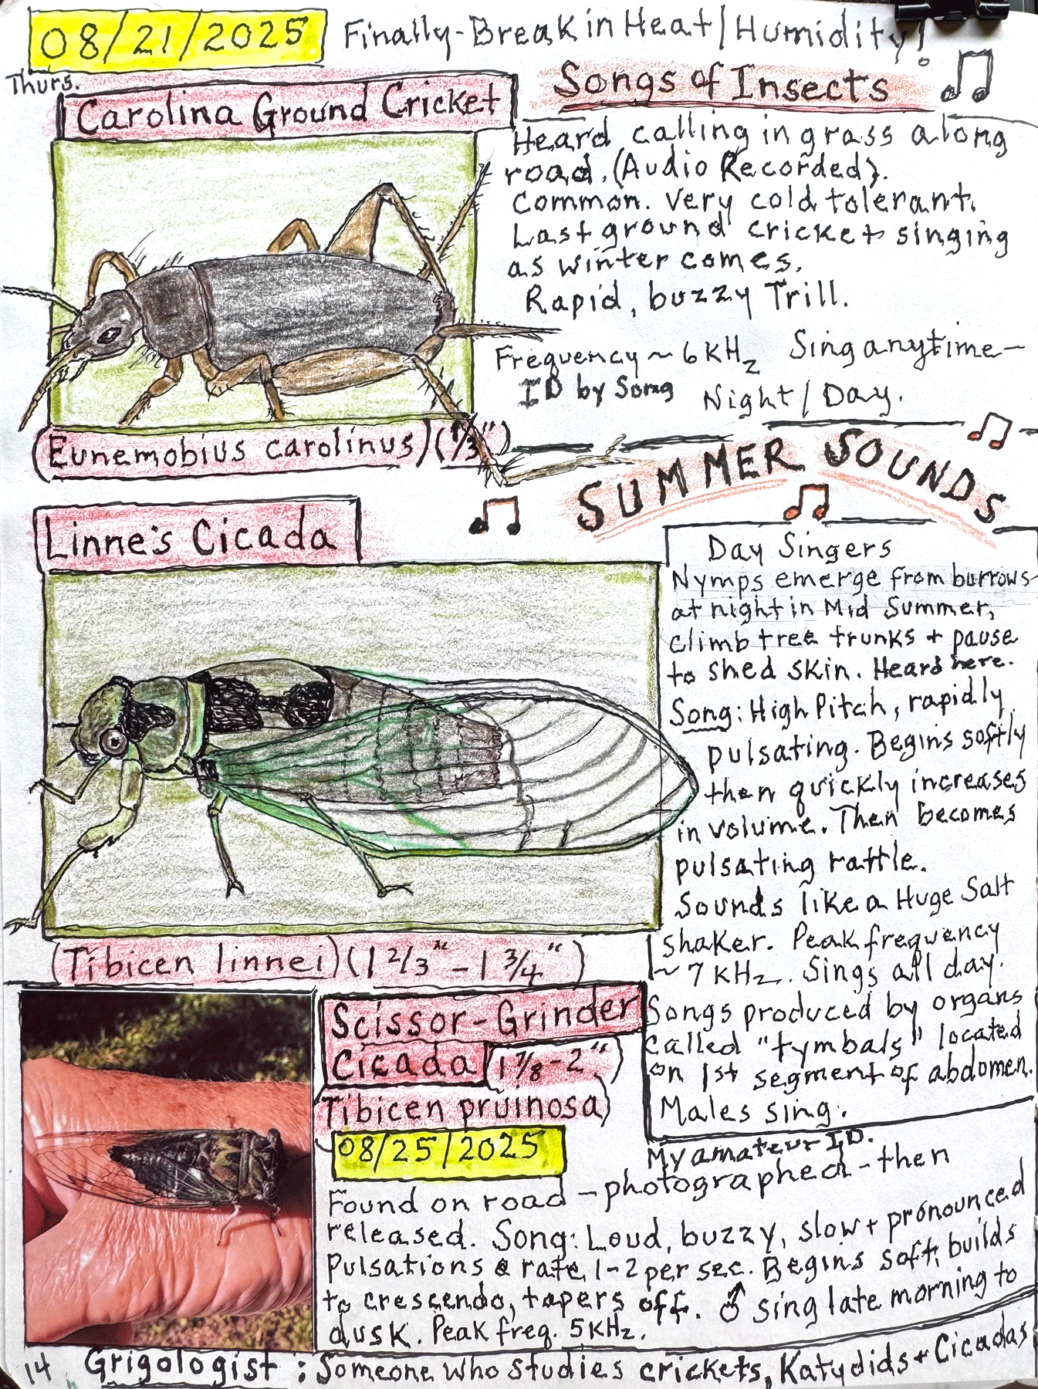 08/21/2025 Finally-Break in Heat/Humidity!
Thurs.
Carolina Ground Cricket
Songs of Insects
Heard calling in grass along
road. (Audio Recorded).
Common. Very cold tolerant.
Last ground cricket singing
as winter comes.
Rapid, buzzy Trill.
Frequency ~ 6 KHz Sing anytime-
ID by Song Night/Day.
(Eunemobius carolinus) (1/3")
SUMMER SOUNDS
Linne's Cicada
Day Singers
Nymps emerge from burrows
at night in Mid Summer,
climb tree trunks + pause
to shed skin. Heard here.
Song: High Pitch, rapidly
pulsating. Begins softly
then quickly increases
in volume. Then becomes
pulsating rattle.
Sounds like a Huge Salt
shaker. Peak frequency
~ 7 KHz. Sings all day.
Songs produced by organs
called "tymbals" located
on 1st segment of abdomen.
Males sing.
(Tibicen linnei) (1 2/3" - 1 3/4")
Scissor-Grinder
Cicada (1 7/8 - 2")
Tibicen pruinosa)
08/25/2025
My amateur ID.
Found on road - photographed - then
released. Song: Loud, buzzy, slow + pronounced
Pulsations @ rate 1-2 per sec. Begins soft, builds
to crescendo, tapers off. ♂ sing late morning to
dusk. Peak freq. 5 KHz.
14 Grigologist: Someone who studies crickets, Katydids + Cicadas